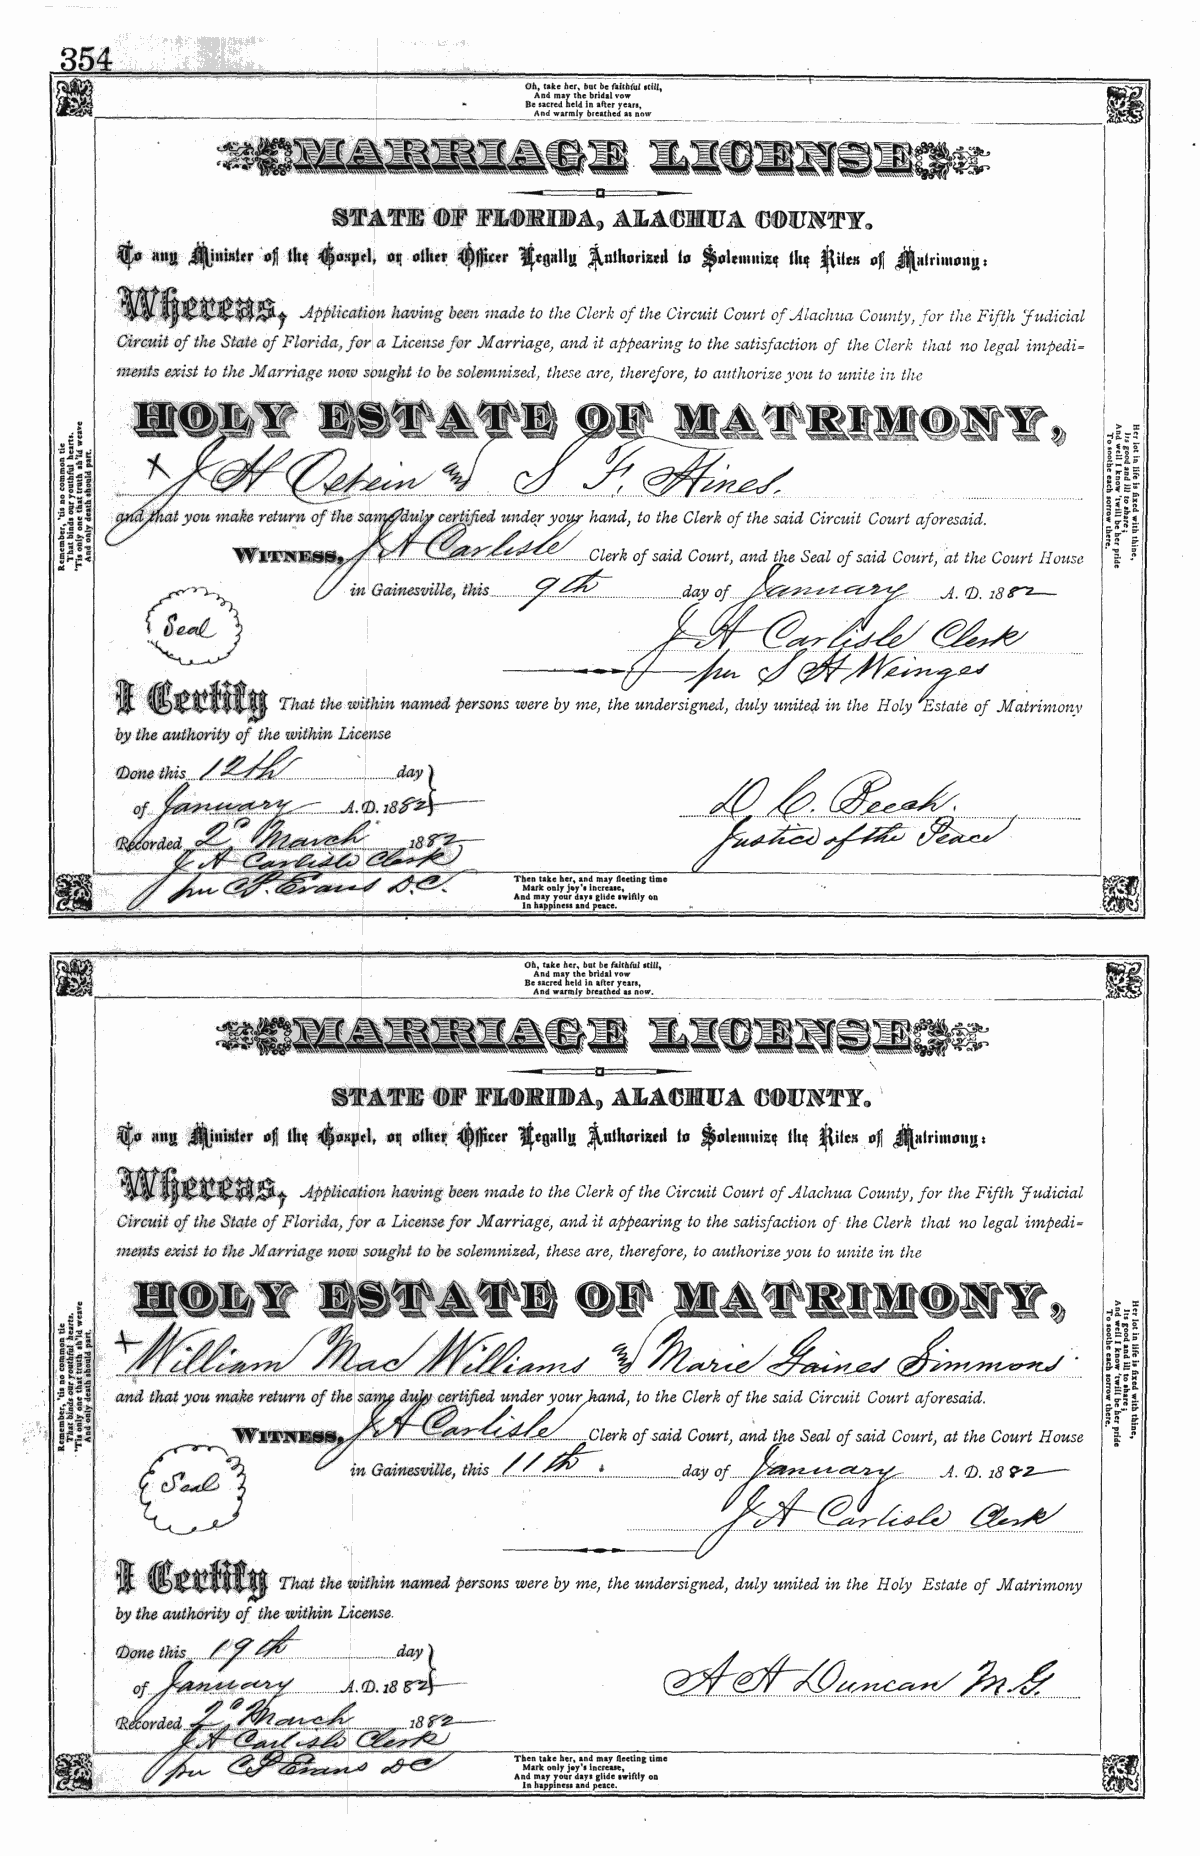 354
Oh, take her, but be faithful still,
And may the bridal vow
Be sacred held in after years,
And warmly breathed as now
MARRIAGE LICENSE
STATE OF FLORIDA, ALACHUA COUNTY.
To any Minister of the Gospel, or other Officer Legally Authorized to Solemnize the Rites of Matrimony:
Whereas, Application having been made to the Clerk of the Circuit Court of Alachua County, for the Fifth Judicial
Circuit of the State of Florida, for a License for Marriage, and it appearing to the satisfaction of the Clerk that no legal impedi=
ments exist to the Marriage now sought to be solemnized, these are, therefore, to authorize you to unite in the
HOLY ESTATE OF MATRIMONY,
+ J H Ostein and S F. Hines.
and that you make return of the same duly certified under your hand, to the Clerk of the said Circuit Court aforesaid.
WITNESS, J A Carlisle Clerk of said Court, and the Seal of said Court, at the Court House
in Gainesville, this 9th day of January A. D. 1882
Seal
J A Carlisle Clerk
per S H Weinges
I Certify That the within named persons were by me, the undersigned, duly united in the Holy Estate of Matrimony
by the authority of the within License
Done this 12th day
of January A.D. 1882
D C. Beach.
Justice of the Peace
Recorded 2d March 1882
J A Carlisle Clerk
per C P. Evans D.C.
Remember, 'tis no common tie
That binds our youthful hearts.
'Tis only one that truth sh'ld weave
And only death should part.
Her lot in life is fixed with thine,
Its good and ill to share;
And well I know 'twill be her pride
To soothe each sorrow there.
Then take her, and may fleeting time
Mark only joy's increase,
And may your days glide swiftly on
In happiness and peace.
Oh, take her, but be faithful still,
And may the bridal vow
Be sacred held in after years,
And warmly breathed as now.
MARRIAGE LICENSE
STATE OF FLORIDA, ALACHUA COUNTY.
To any Minister of the Gospel, or other Officer Legally Authorized to Solemnize the Rites of Matrimony:
Whereas, Application having been made to the Clerk of the Circuit Court of Alachua County, for the Fifth Judicial
Circuit of the State of Florida, for a License for Marriage, and it appearing to the satisfaction of the Clerk that no legal impedi=
ments exist to the Marriage now sought to be solemnized, these are, therefore, to authorize you to unite in the
HOLY ESTATE OF MATRIMONY,
+ William Mac Williams and Marie Gaines Simmons
and that you make return of the same duly certified under your hand, to the Clerk of the said Circuit Court aforesaid.
WITNESS, J A Carlisle Clerk of said Court, and the Seal of said Court, at the Court House
in Gainesville, this 11th day of January A. D. 1882
Seal
J A Carlisle Clerk
I Certify That the within named persons were by me, the undersigned, duly united in the Holy Estate of Matrimony
by the authority of the within License.
Done this 19th day
of January A.D. 1882
A A Duncan M.G.
Recorded 2d March 1882
J A Carlisle Clerk
per C P Evans D C
Remember, 'tis no common tie
That binds our youthful hearts.
'Tis only one that truth sh'ld weave
And only death should part.
Her lot in life is fixed with thine,
Its good and ill to share;
And well I know 'twill be her pride
To soothe each sorrow there.
Then take her, and may fleeting time
Mark only joy's increase,
And may your days glide swiftly on
In happiness and peace.